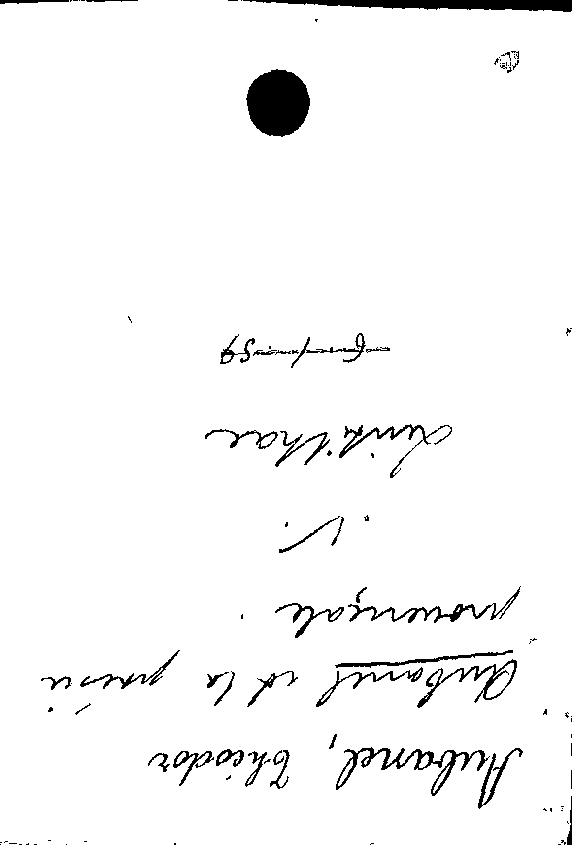 Aubanel, Théodor
Aubanel et la poésie
provençale.
V.
Lintilhac